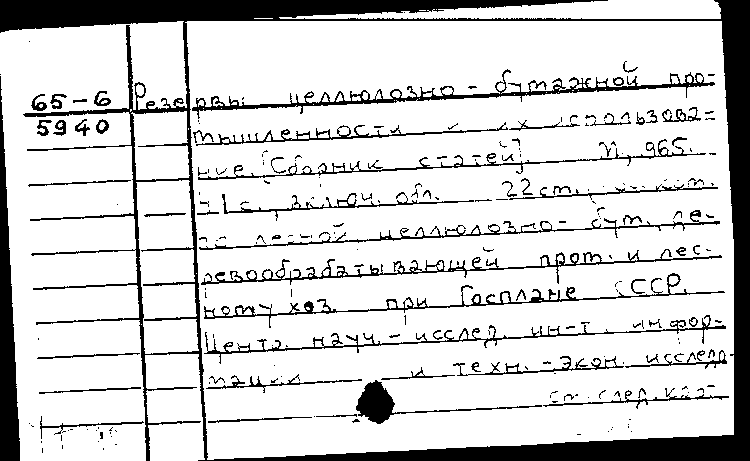 65-6
5940
Резервы целлюлозно-бумажной про-
мышленности и их использова-
ние. [Сборник статей]. М, 965.
41 с., включ. обл. 22 см.,
по лесной, целлюлозно-бум., де-
ревообрабатывающей пром. и лес-
ному хоз. при Госплане СССР.
Центр. науч.-исслед. ин-т. инфор-
мации и техн.-экон. исследо-
см. след. кар.